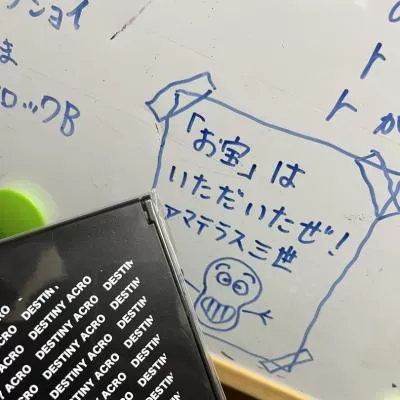 ョイ
ま
ロックB
ト
ト が
「お宝」は
いただいたぜ!
アマテラス三世
DESTIN
ACRO DESTINY ACRO DESTIN
ACRO DESTINY ACRO DESTIN
ACRO DESTINY ACRO DESTIN
ACRO DESTINY ACRO DESTIN
DESTINY ACRO DESTIN
DESTINY ACRO